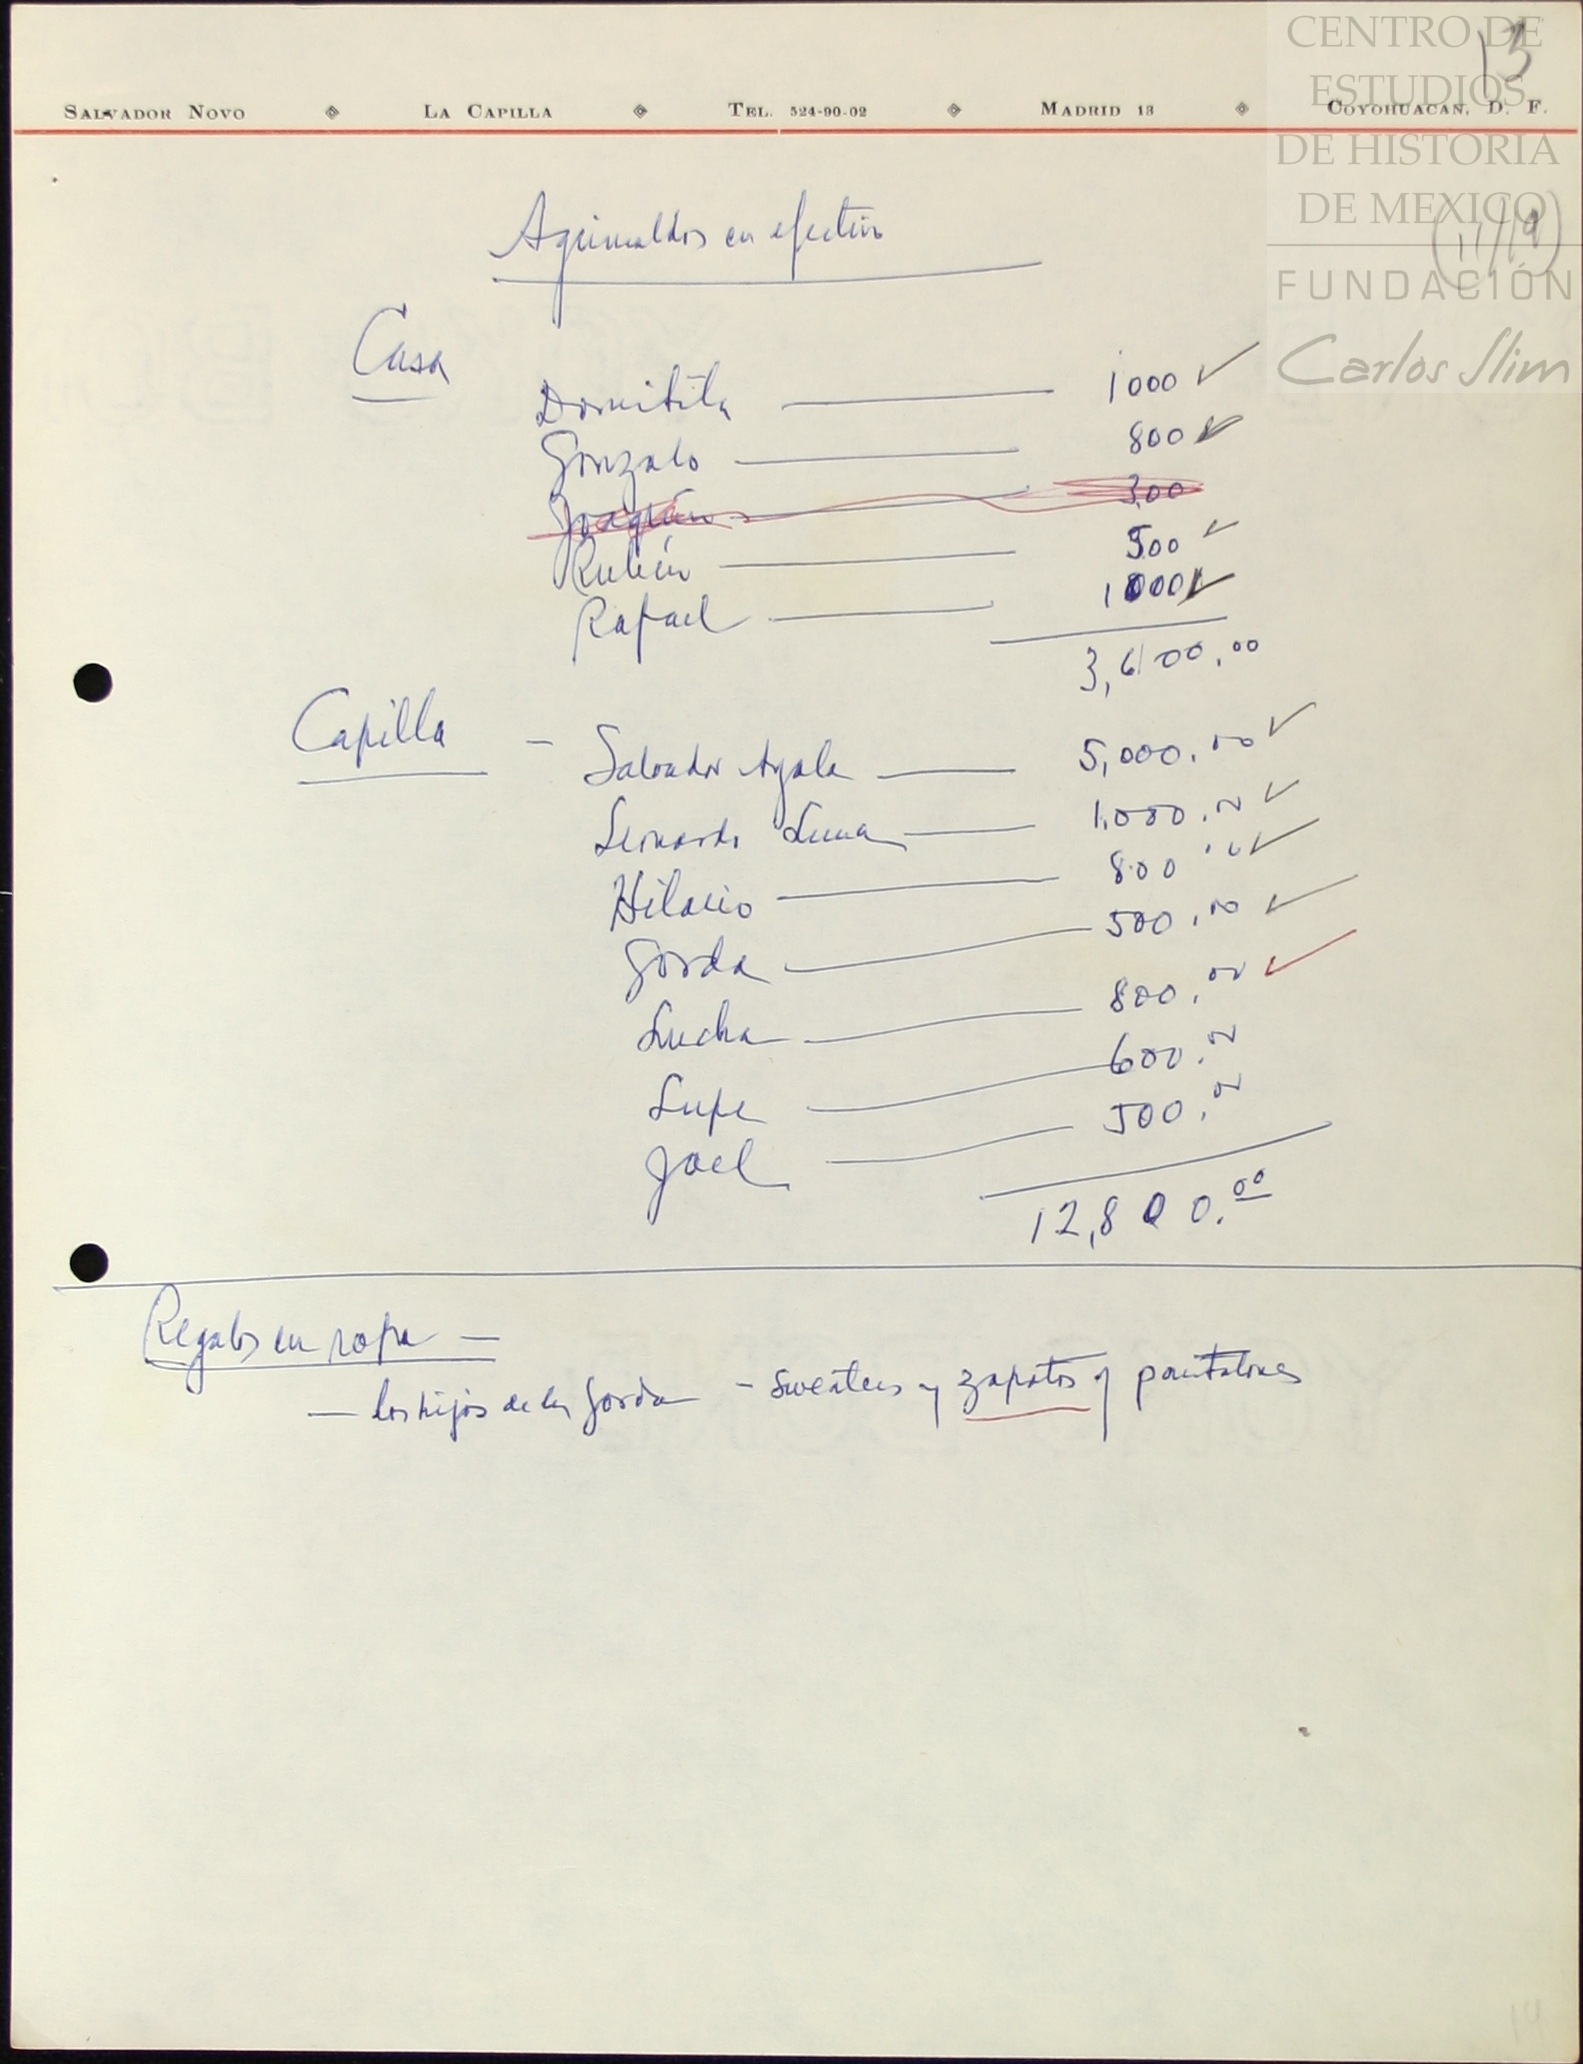 CENTRO DE
ESTUDIOS
DE HISTORIA
DE MEXICO
FUNDACIÓN
Carlos Slim
13
SALVADOR NOVO LA CAPILLA TEL. 524-90-02 MADRID 13 COYOHUACAN, D. F.
Aguinaldos en efectivo
Casa
Domitila — 1000 ✓
Gonzalo — 800 ✓
Joaquín — 300
Rubén — 500 ✓
Rafael — 1000 ✓
3,600.00
Capilla – Salvador Ayala — 5,000.00 ✓
Leonardo Luna — 1.000.00 ✓
Hilario — 800 ✓
Gorda — 500.00 ✓
Lucha — 800.00 ✓
Lupe — 600.00
Joel — 500.00
12,800.00
Regalos en ropa —
— los hijos de la Gorda – sweaters y zapatos y pantalones
14